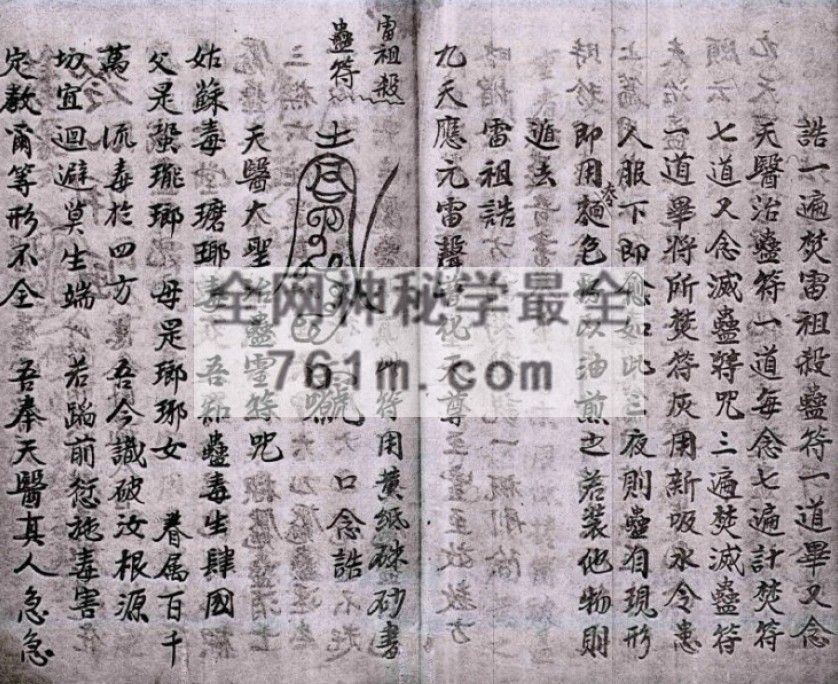 誥一遍焚雷祖殺蠱符一道畢又念
天醫治蠱符一道每念七遍計焚符
七道又念滅蠱將咒三遍焚滅蠱符
一道畢將所焚符灰用新吸水令患
人服下即愈如此三夜則蠱自現形
即用麵包好以油煎之若裝他物則
逃去
雷祖誥
九天應元雷聲普化天尊至靈至
雷祖殺
蠱符
此符用黃紙硃砂書
口念誥
天醫大聖治蠱靈符咒
姑蘇毒 瑭瑯毒 吾知蠱毒生肆國
父是蛩瓏瑯 母是瑯琊女 眷属百千
萬 流毒於四方 吾今識破汝根源
切宜迴避莫生端 若蹈前愆施毒害
定教爾等形不全 吾奉天醫真人急急
全网神秘学最全
761m.com